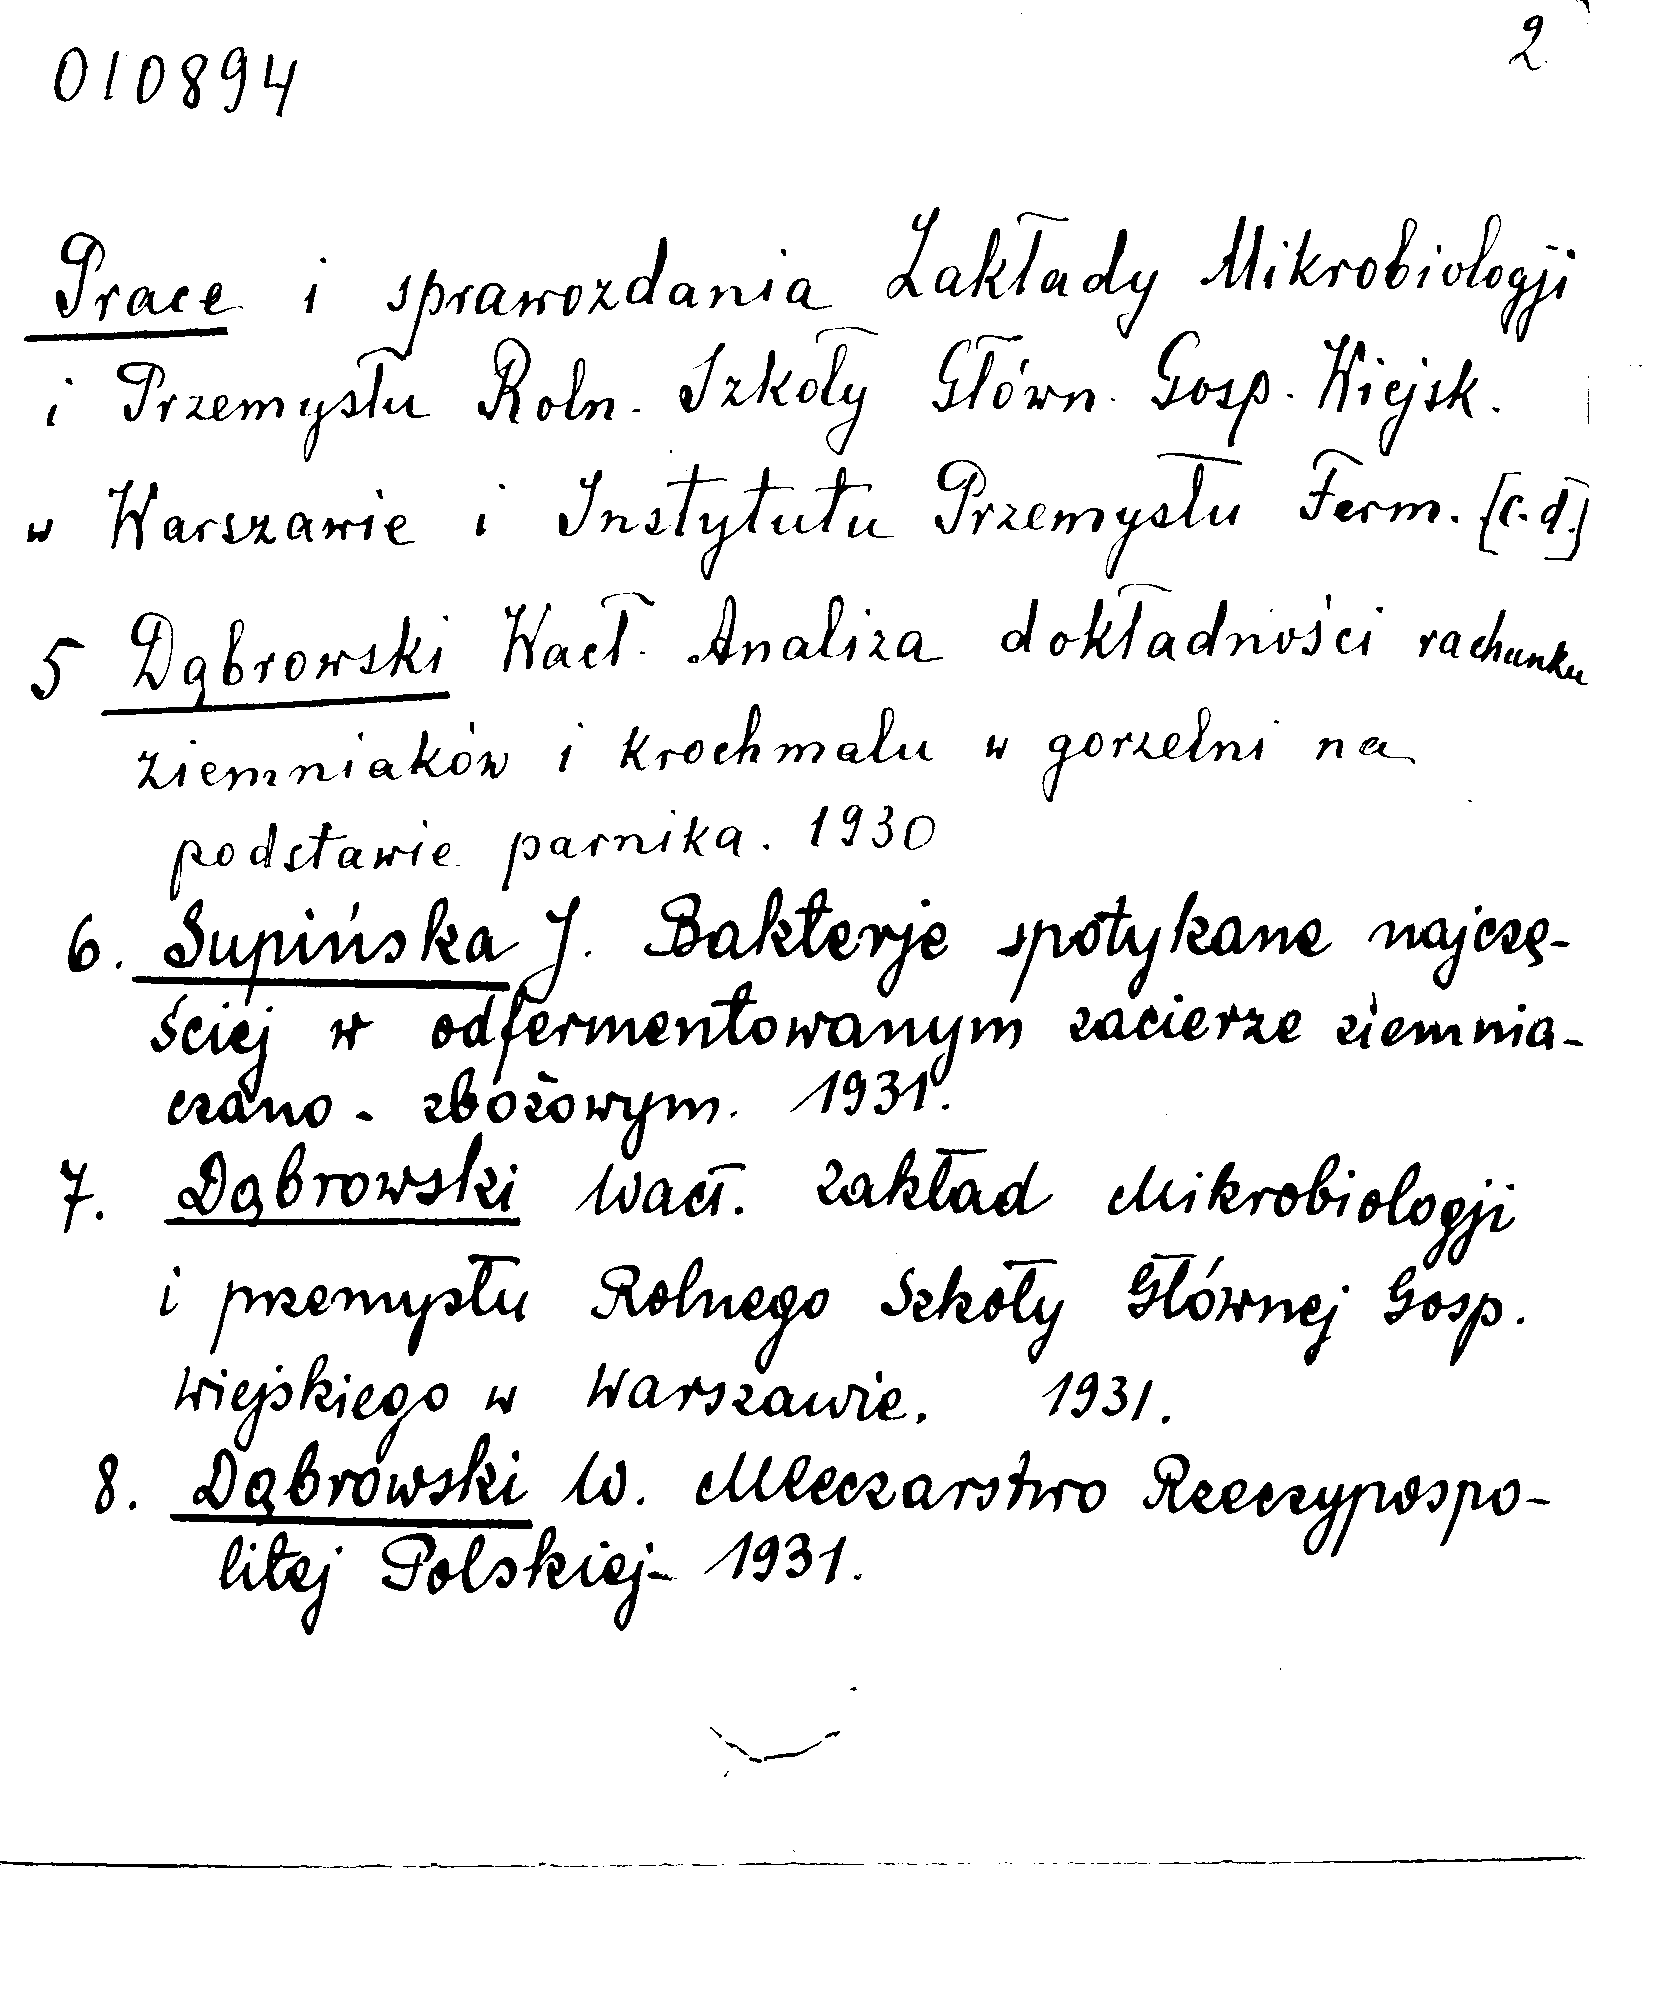 010894
2
Prace i sprawozdania Zakłady Mikrobiologji
i Przemysłu Roln. Szkoły Główn. Gosp. Wiejsk.
w Warszawie i Instytutu Przemysłu Ferm. [c.d.]
5 Dąbrowski Wacł. Analiza dokładności rachunku
ziemniaków i krochmalu w gorzelni na
podstawie parnika. 1930
6. Supińska J. Bakterje spotykane najczę-
ściej w odfermentowanym zacierze ziemnia-
czano - zbożowym. 1931.
7. Dąbrowski Wacł. Zakład Mikrobiologji
i przemysłu Rolnego Szkoły Głównej Gosp.
Wiejskiego w Warszawie. 1931.
8. Dąbrowski W. Mleczarstwo Rzeczypospo-
litej Polskiej- 1931.